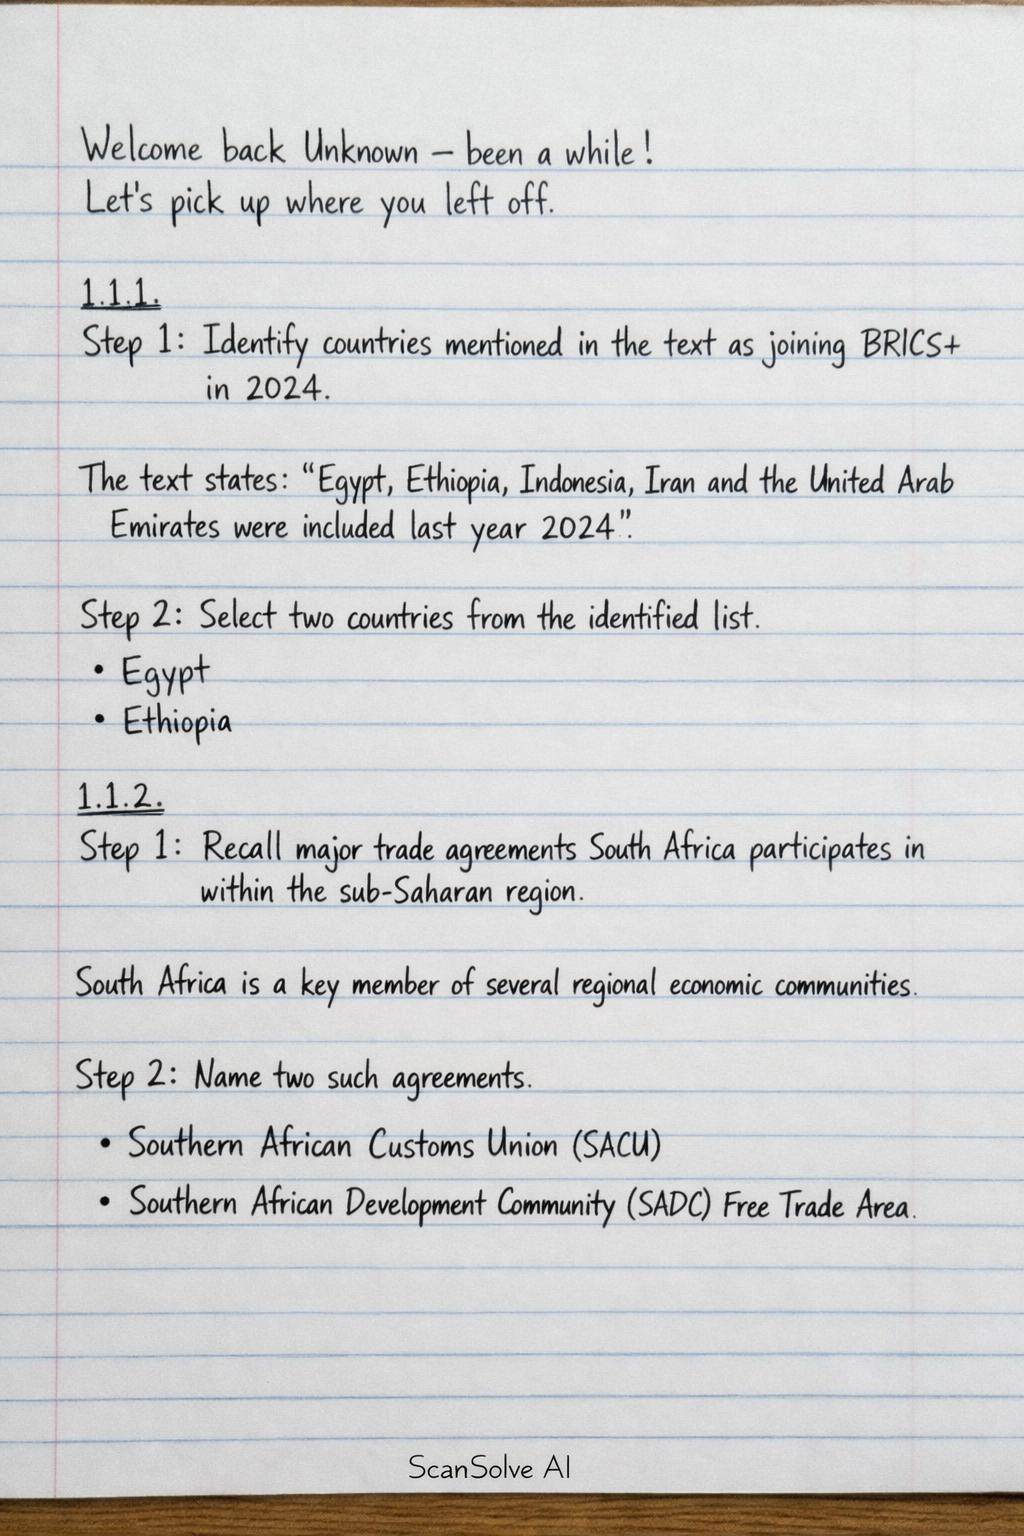 Welcome back Unknown – been a while!
Let's pick up where you left off.
1.1.1.
Step 1: Identify countries mentioned in the text as joining BRICS+
in 2024.
The text states: “Egypt, Ethiopia, Indonesia, Iran and the United Arab
Emirates were included last year 2024”.
Step 2: Select two countries from the identified list.
• Egypt
• Ethiopia
1.1.2.
Step 1: Recall major trade agreements South Africa participates in
within the sub-Saharan region.
South Africa is a key member of several regional economic communities.
Step 2: Name two such agreements.
• Southern African Customs Union (SACU)
• Southern African Development Community (SADC) Free Trade Area.
ScanSolve AI